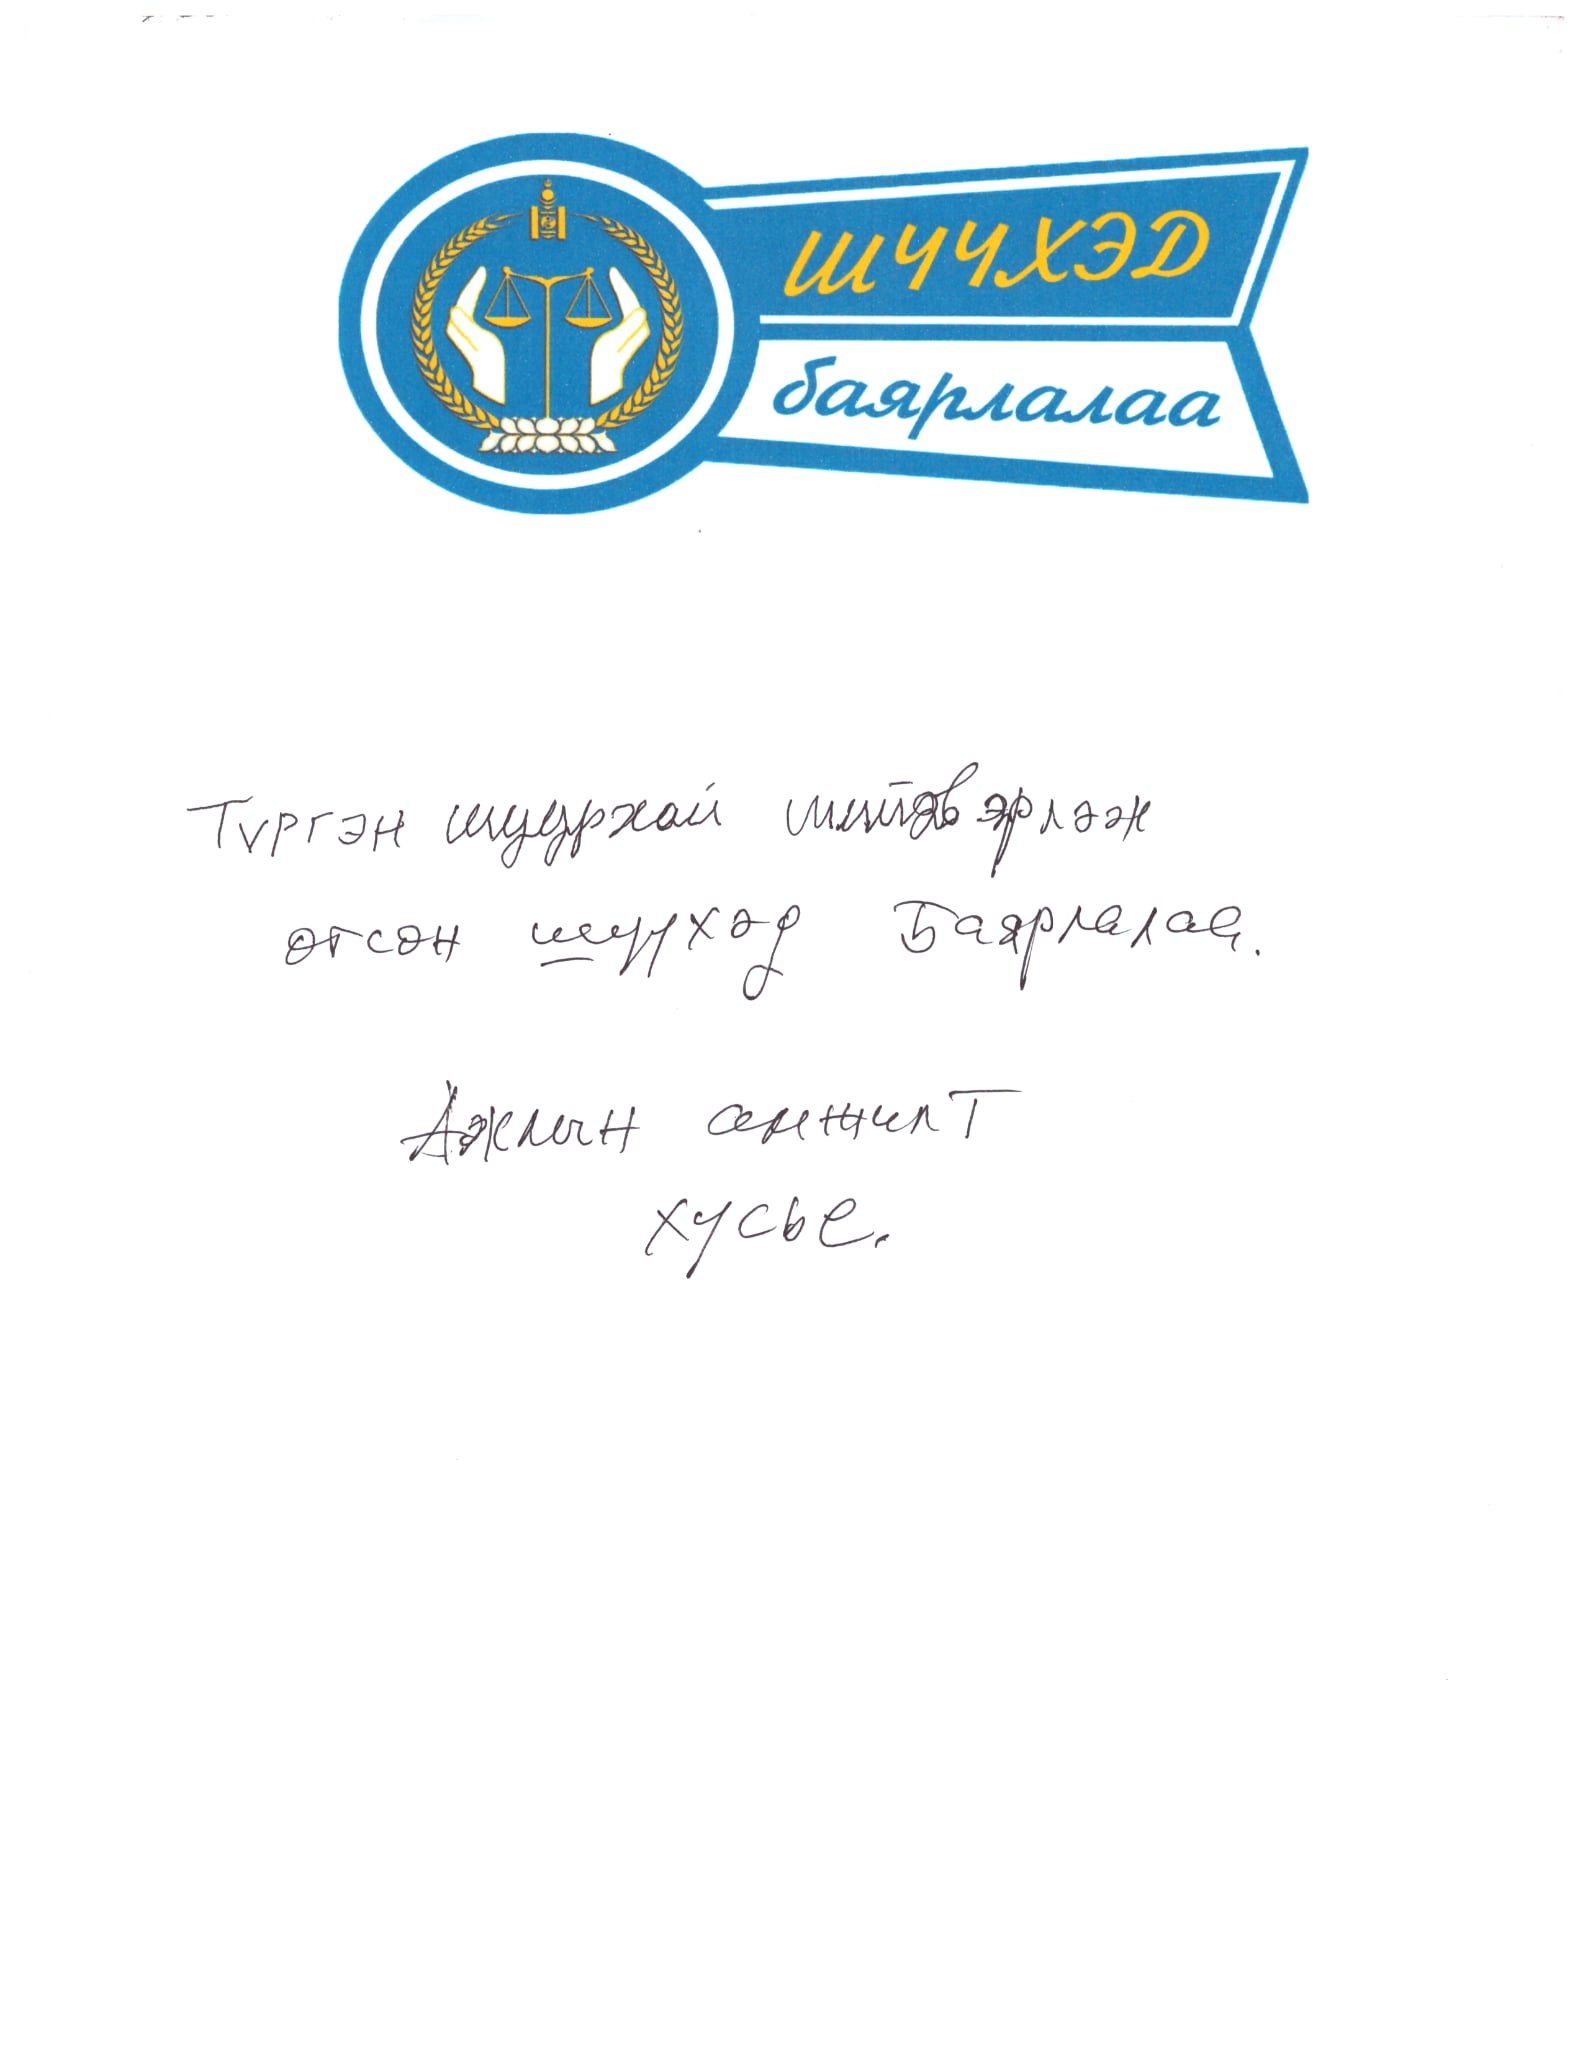 ШҮҮХЭД
баярлалаа
Түргэн шуурхай шийдвэрлэж
өгсөн шүүхэд Баярлалаа.
Ажлын амжилт
хүсье.